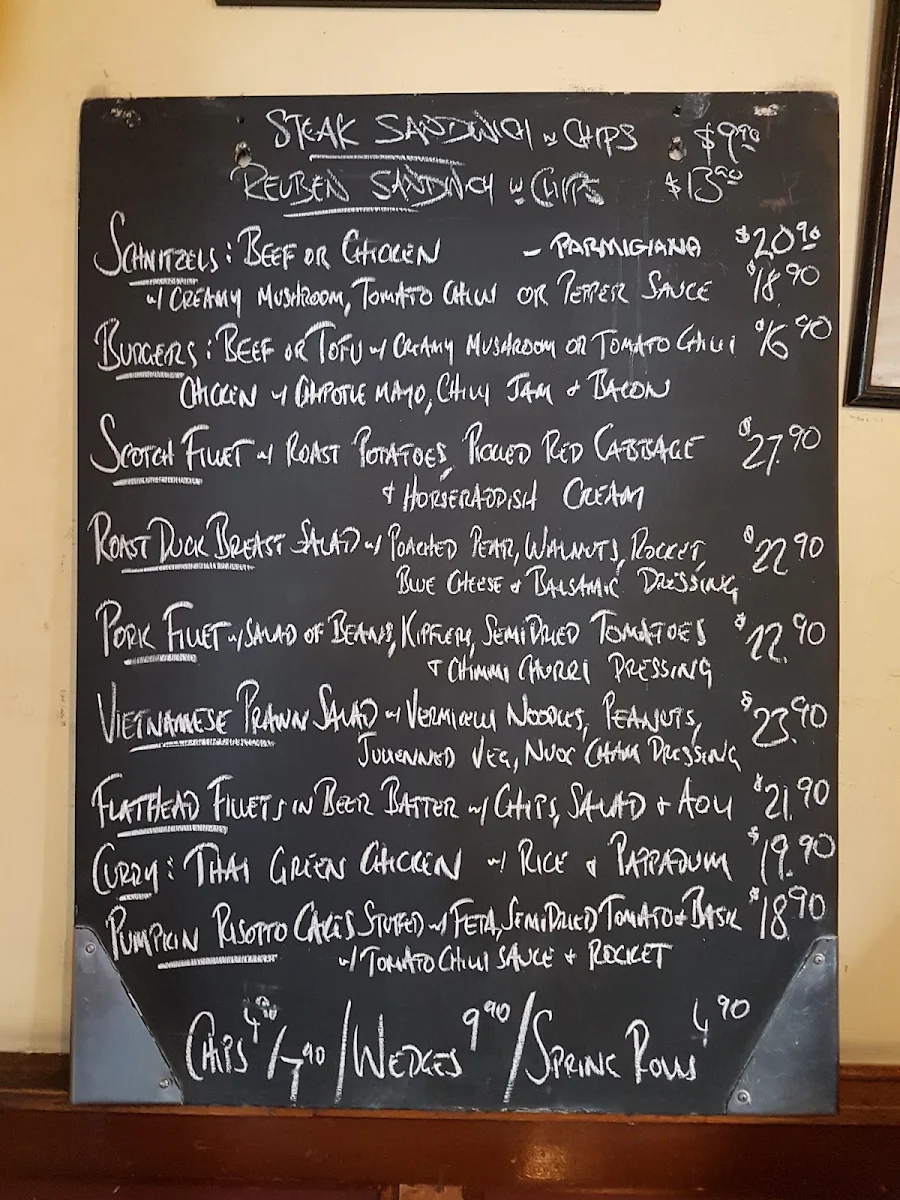 STEAK SANDWICH w CHIPS $9.90
REUBEN SANDWICH w CHIPS $13.90
SCHNITZELS : BEEF OR CHICKEN - PARMIGIANA $20.90
w/ CREAMY MUSHROOM, TOMATO CHILLI OR PEPPER SAUCE $18.90
BURGERS : BEEF OR TOFU w/ CREAMY MUSHROOM OR TOMATO CHILLI $16.90
CHICKEN w/ CHIPOTLE MAYO, CHILLI JAM & BACON
SCOTCH FILLET w/ ROAST POTATOES, PICKLED RED CABBAGE $27.90
& HORSERADDISH CREAM
ROAST DUCK BREAST SALAD w/ POACHED PEAR, WALNUTS, ROCKET, $22.90
BLUE CHEESE & BALSAMIC DRESSING
PORK FILLET w/ SALAD OF BEANS, KIPFLERS, SEMIDRIED TOMATOES $22.90
& CHIMMI CHURRI DRESSING
VIETNAMESE PRAWN SALAD w/ VERMICELLI NOODLES, PEANUTS, $23.90
JULIENNED VEG, NUOC CHAM DRESSING
FLATHEAD FILLETS IN BEER BATTER w/ CHIPS, SALAD & AOLI $21.90
CURRY : THAI GREEN CHICKEN w/ RICE & PAPPADUM $19.90
PUMPKIN RISOTTO CAKES STUFFED w/ FETA, SEMIDRIED TOMATO & BASIL $18.90
w/ TOMATO CHILLI SAUCE & ROCKET
CHIPS 4.90/7.90 / WEDGES 9.90 / SPRING ROLLS 4.90